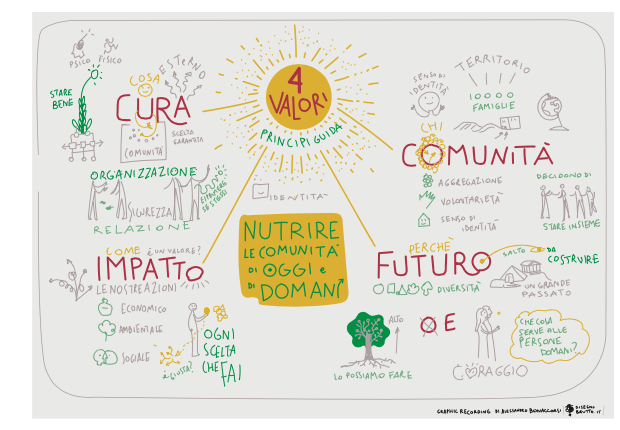 4
VALORI
PRINCIPI GUIDA
PSICO FISICO
ESTERNO
COSA
STARE
BENE
CURA
SCELTA
GARANTITA
COMUNITÀ
ORGANIZZAZIONE
SICUREZZA
ESPRIMERE
SE STESSI
RELAZIONE
IDENTITÀ
SENSO DI
IDENTITÀ
TERRITORIO
10000
FAMIGLIE
CHI
COMUNITÀ
AGGREGAZIONE
VOLONTARIETÀ
SENSO DI
IDENTITÀ
DECIDONO DI
STARE INSIEME
NUTRIRE
LE COMUNITÀ
DI OGGI e
DI DOMANI
COME È UN VALORE?
IMPATTO
LE NOSTRE AZIONI
ECONOMICO
AMBIENTALE
SOCIALE
È GIUSTA?
OGNI
SCELTA
CHE FAI
PERCHÉ
FUTURO
SALTO
DA
COSTRUIRE
DIVERSITÀ
UN GRANDE
PASSATO
ALTO
LO POSSIAMO FARE
O E
CORAGGIO
CHE COSA
SERVE ALLE
PERSONE
DOMANI?
GRAPHIC RECORDING DI ALESSANDRO BONACCORSI
DISEGNO
BRUTTO.IT